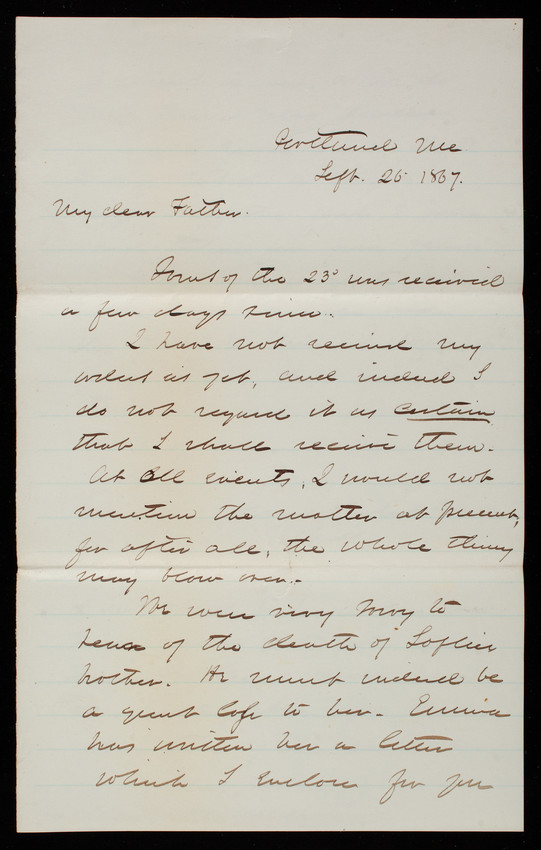 Portland Me
Sept. 25 1867.
My dear Father.
Yours of the 23d was received
a few days since.
I have not received my
orders as yet, and indeed I
do not regard it as certain
that I shall receive them.
At all events, I would not
mention the matter at present,
for after all, the whole thing
may blow over.
We were very sorry to
hear of the death of Sophies
brother. He must indeed be
a great loss to her. Emma
has written her a letter
which I enclose for you